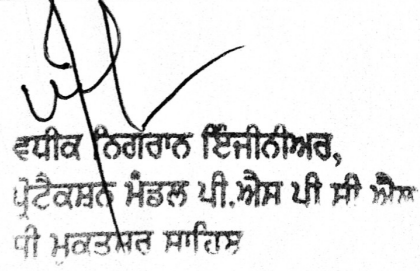 ਵਧੀਕ ਨਿਗਰਾਨ ਇੰਜੀਨੀਅਰ,
ਪ੍ਰੋਟੈਕਸ਼ਨ ਮੰਡਲ ਪੀ.ਐਸ ਪੀ ਸੀ ਐਲ
ਸ਼੍ਰੀ ਮੁਕਤਸਰ ਸਾਹਿਬ